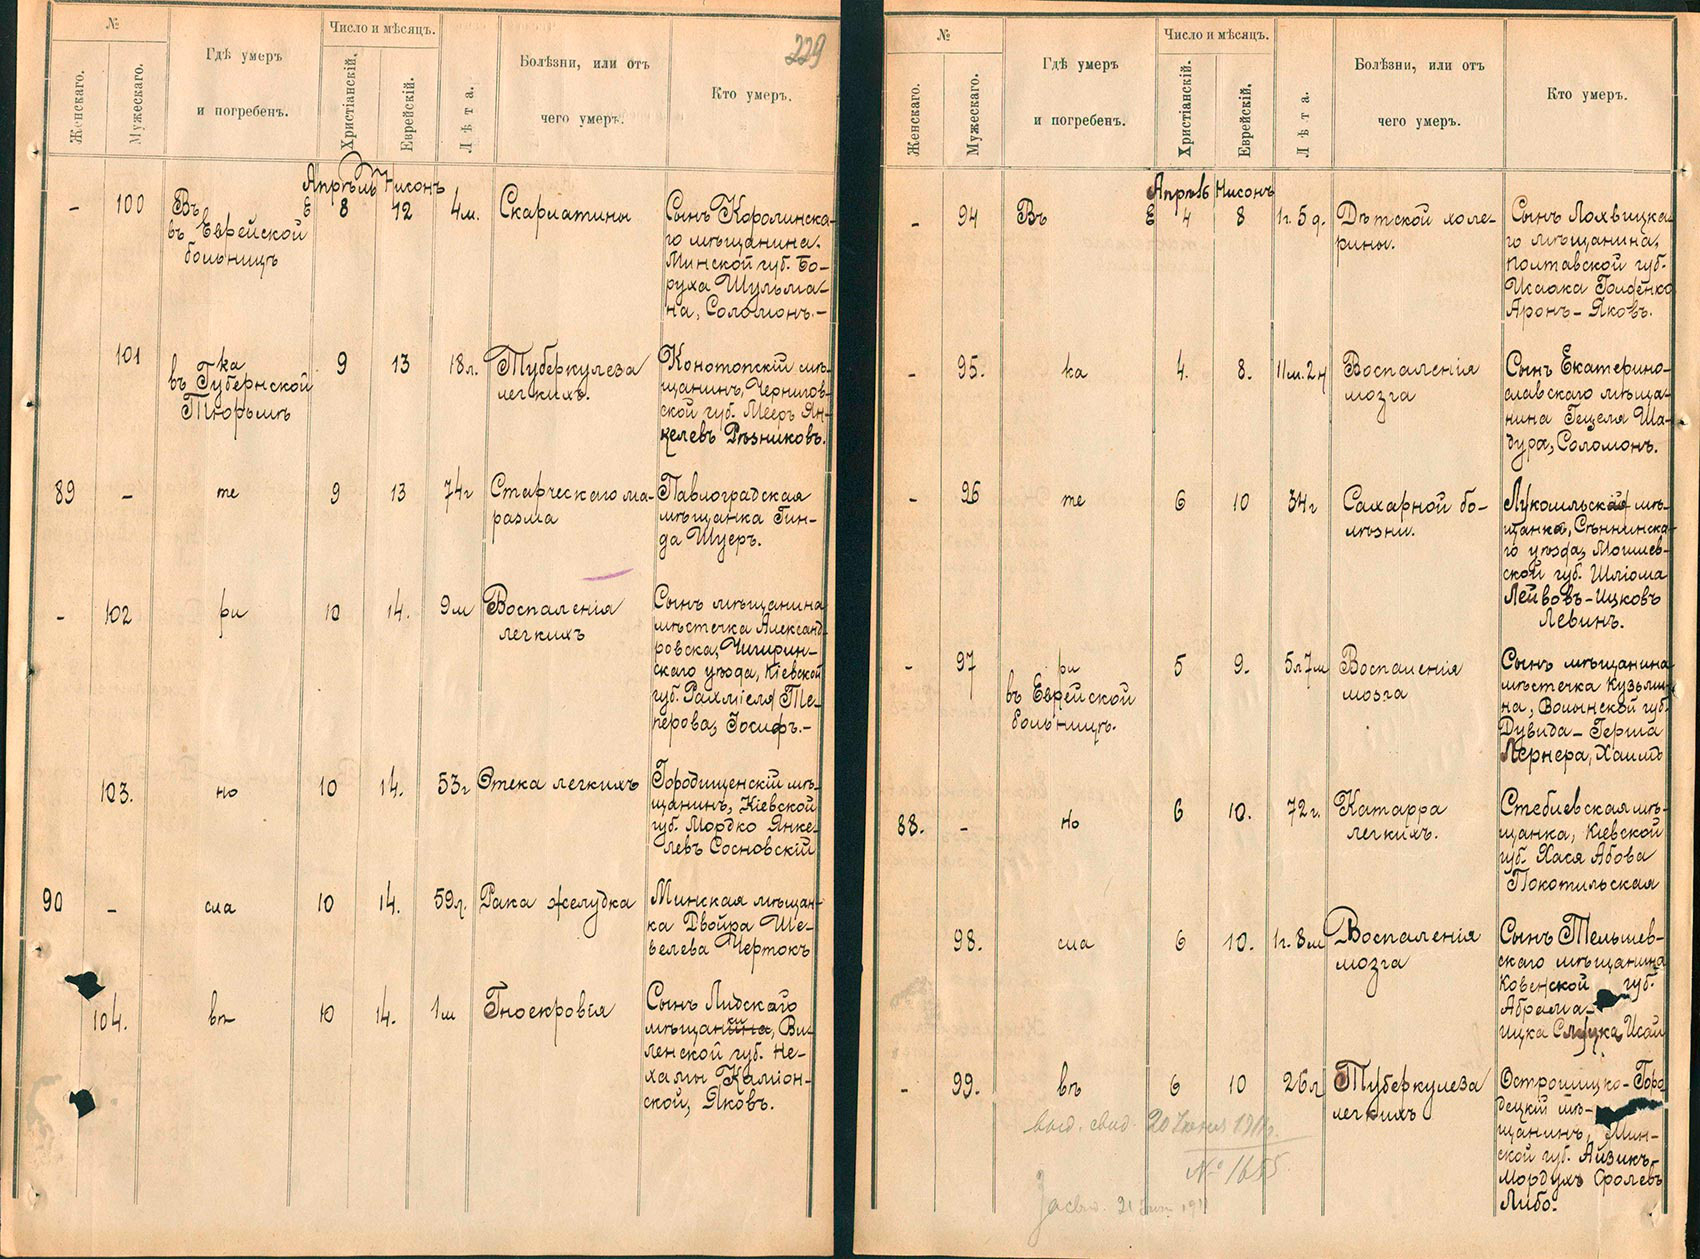 №
Женскаго.
Мужескаго.
Гдѣ умеръ
и погребенъ.
Число и мѣсяцъ.
Христіанскій.
Еврейскій.
Лѣта.
Болѣзни, или отъ
чего умеръ.
Кто умеръ.
229
Апрѣль Нисонъ
- 100 Въ 8 12 4м. Скарлатины
въ Еврейской
больницѣ
Сынъ Королинска-
го мѣщанина,
Минской губ. Бо-
руха Шульма-
на, Соломонъ.-
101 ка 9 13 18л. Туберкулеза
въ Губернской легкихъ.
Тюрьмѣ
Конотопскій мѣ-
щанинъ, Чернигов-
ской губ. Мееръ Ян-
келевъ Рѣзниковъ.
89 - те 9 13 74г Старческаго ма-
разма
Павлоградская
мѣщанка Гин-
да Шуеръ.
- 102 ри 10 14. 9м Воспаленія
легкихъ
Сынъ мѣщанина
мѣстечка Александ-
ровска, Чигирин-
скаго уѣзда, Кіевской
губ. Рахміеля Те-
перова, Іосифъ.-
103. но 10 14. 53г Отека легкихъ
Городищенскій мѣ-
щанинъ, Кіевской
губ. Мордко Янке-
левъ Сосновскій
90 - сла 10 14. 59л. Рака желудка
Минская мѣщан-
ка Двойра Ше-
велева Чертокъ
104. въ 10 14. 1м Гноекровія
Сынъ Лидскаго
мѣщан, Ви-
ленской губ. Не-
хамы Каміон-
ской, Яковъ.
№
Женскаго.
Мужескаго.
Гдѣ умеръ
и погребенъ.
Число и мѣсяцъ.
Христіанскій.
Еврейскій.
Лѣта.
Болѣзни, или отъ
чего умеръ.
Кто умеръ.
Апрѣль Нисонъ
- 94 Въ 4 8 1г. 5д. Дѣтской холе-
рины.
Сынъ Лохвицка-
го мѣщанина,
Полтавской губ.
Исаака
Аронъ-Яковъ.
- 95. ка 4. 8. 11м. 2н Воспаленія
мозга
Сынъ Екатерино-
славскаго мѣща-
нина Гецеля Ша-
дура, Соломонъ.
- 96 те 6 10 34г Сахарной бо-
лѣзни.
Лукомльская мѣ-
щанка, Сѣннинска-
го уѣзда, Могилев-
ской губ. Шліома
Лейвовъ-Ицковъ
Левинъ.
- 97 ри 5 9. 5л 7м Воспаленія
въ Еврейской мозга
больницѣ.
Сынъ мѣщанина
мѣстечка Кузьми-
на, Волынской губ.
Дувида-Герша
Лернера, Хаимъ
88. - но 6 10. 72г. Катарра
легкихъ.
Стеблевская мѣ-
щанка, Кіевской
губ. Хася Абова
Покотильская
98. сла 6 10. 1г. 8м Воспаленія
мозга
Сынъ Тельшев-
скаго мѣщанина
Ковенской губ.
Абрама-
Ицка Слуцка,
- 99. въ 6 10 26л Туберкулеза
легкихъ
Острошицко-Горо-
децкій мѣ-
щанинъ, Мин-
ской губ. Айзикъ-
Мордухъ Сролевъ
Либо.
выд. свид. 20 Іюня 1911г.
№ 1655